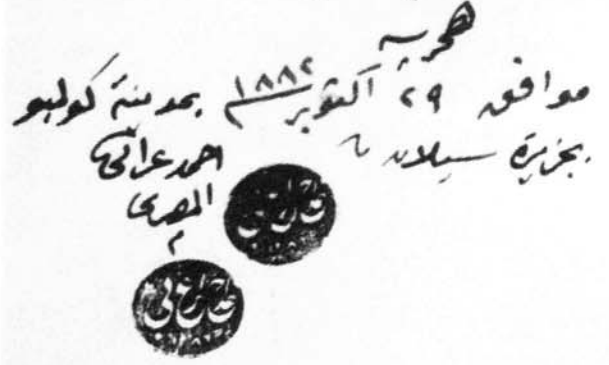 هجرية
موافق ٢٩ اكتوبر ١٨٨٢ بمدينة كولمبو
بجزيرة سيلان
احمد عرابى
المصرى